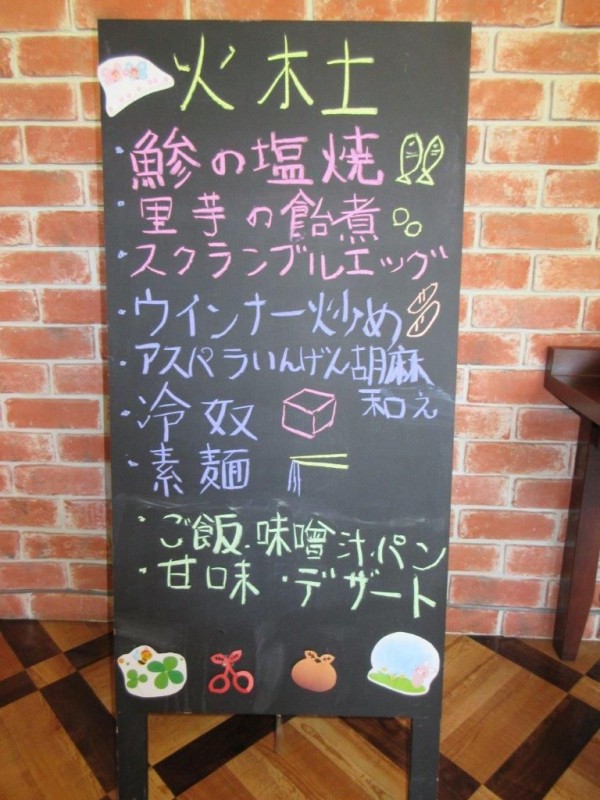 火木土
・鯵の塩焼
・里芋の飴煮
・スクランブルエッグ
・ウインナー炒め
・アスパラいんげん胡麻
和え
・冷奴
・素麺
・ご飯.味噌汁.パン
・甘味・デザート